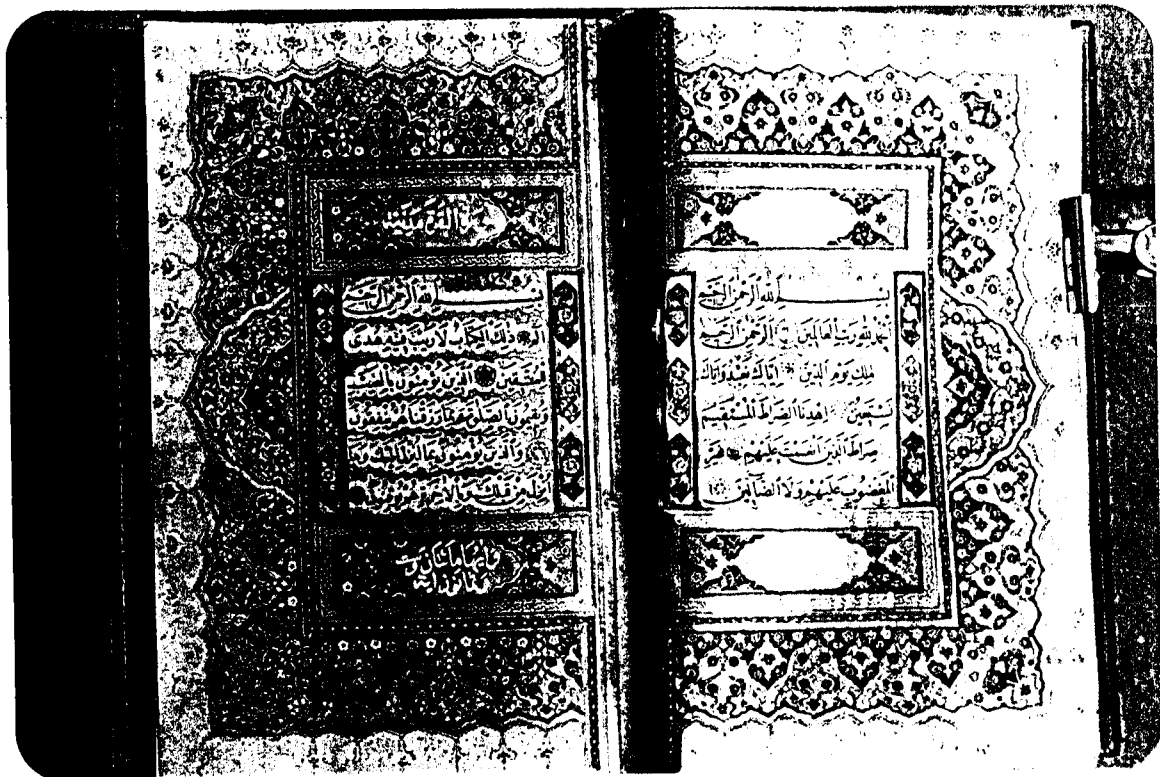 بســـــم الله الرحمن الرحيم
الحمد لله رب العالمين الرحمن الرحيم
ملك يوم الدين اياك نعبد واياك
نستعين اهدنا الصراط المستقيم
صراط الذين انعمت عليهم غير
المغضوب عليهم ولا الضالين
سورة البقرة مدنية
بســـــم الله الرحمن الرحيم
الم ذلك الكتاب لا ريب فيه هدى
للمتقين الذين يؤمنون بالغيب
ويقيمون الصلوة ومما رزقناهم ينفقون
والذين يؤمنون بما انزل اليك وما
انزل من قبلك وبالاخرة هم يوقنون
وآيها مائتان وست
وثمانون آية